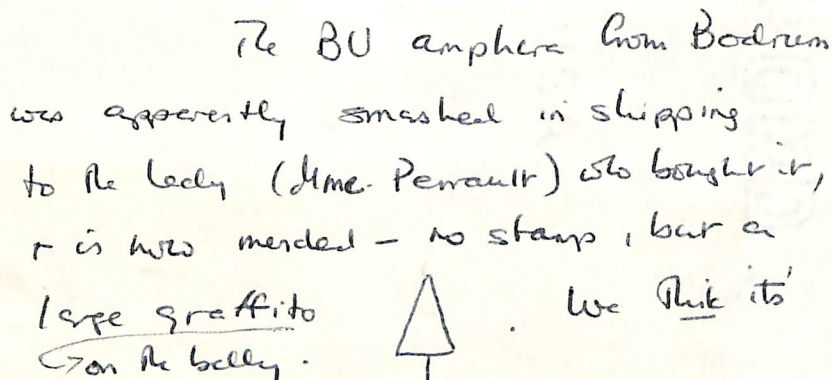 The BU amphora from Bodrum
was apparently smashed in shipping
to the lady (Mme. Perrault) who bought it,
+ is now mended – no stamp, but a
large graffito . We think its'
on the belly.